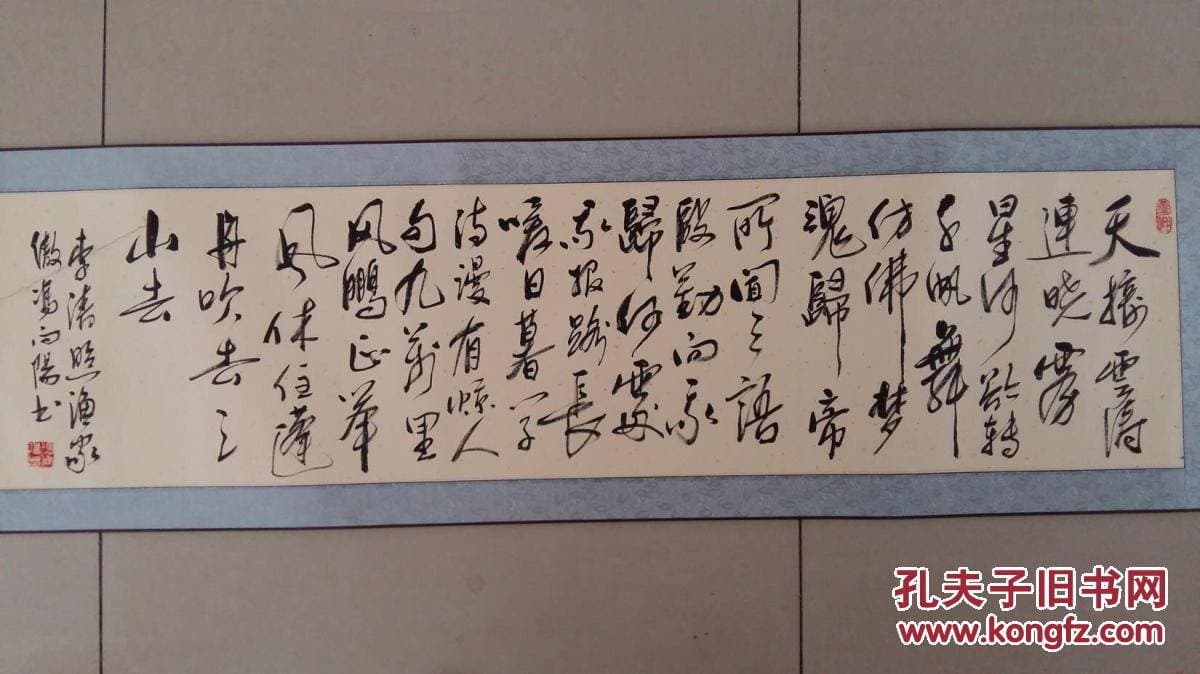 天接雲濤
連晓霧
星河欲轉
千帆舞
仿佛梦
魂歸帝
所闻天語
殷勤问我
歸何處
我报路長
嗟日暮学
诗漫有惊人
句九萬里
风鵬正举
风休住蓬
舟吹去三
山去
李清照漁家
傲 馮向陽书
孔夫子旧书网
www.kongfz.com